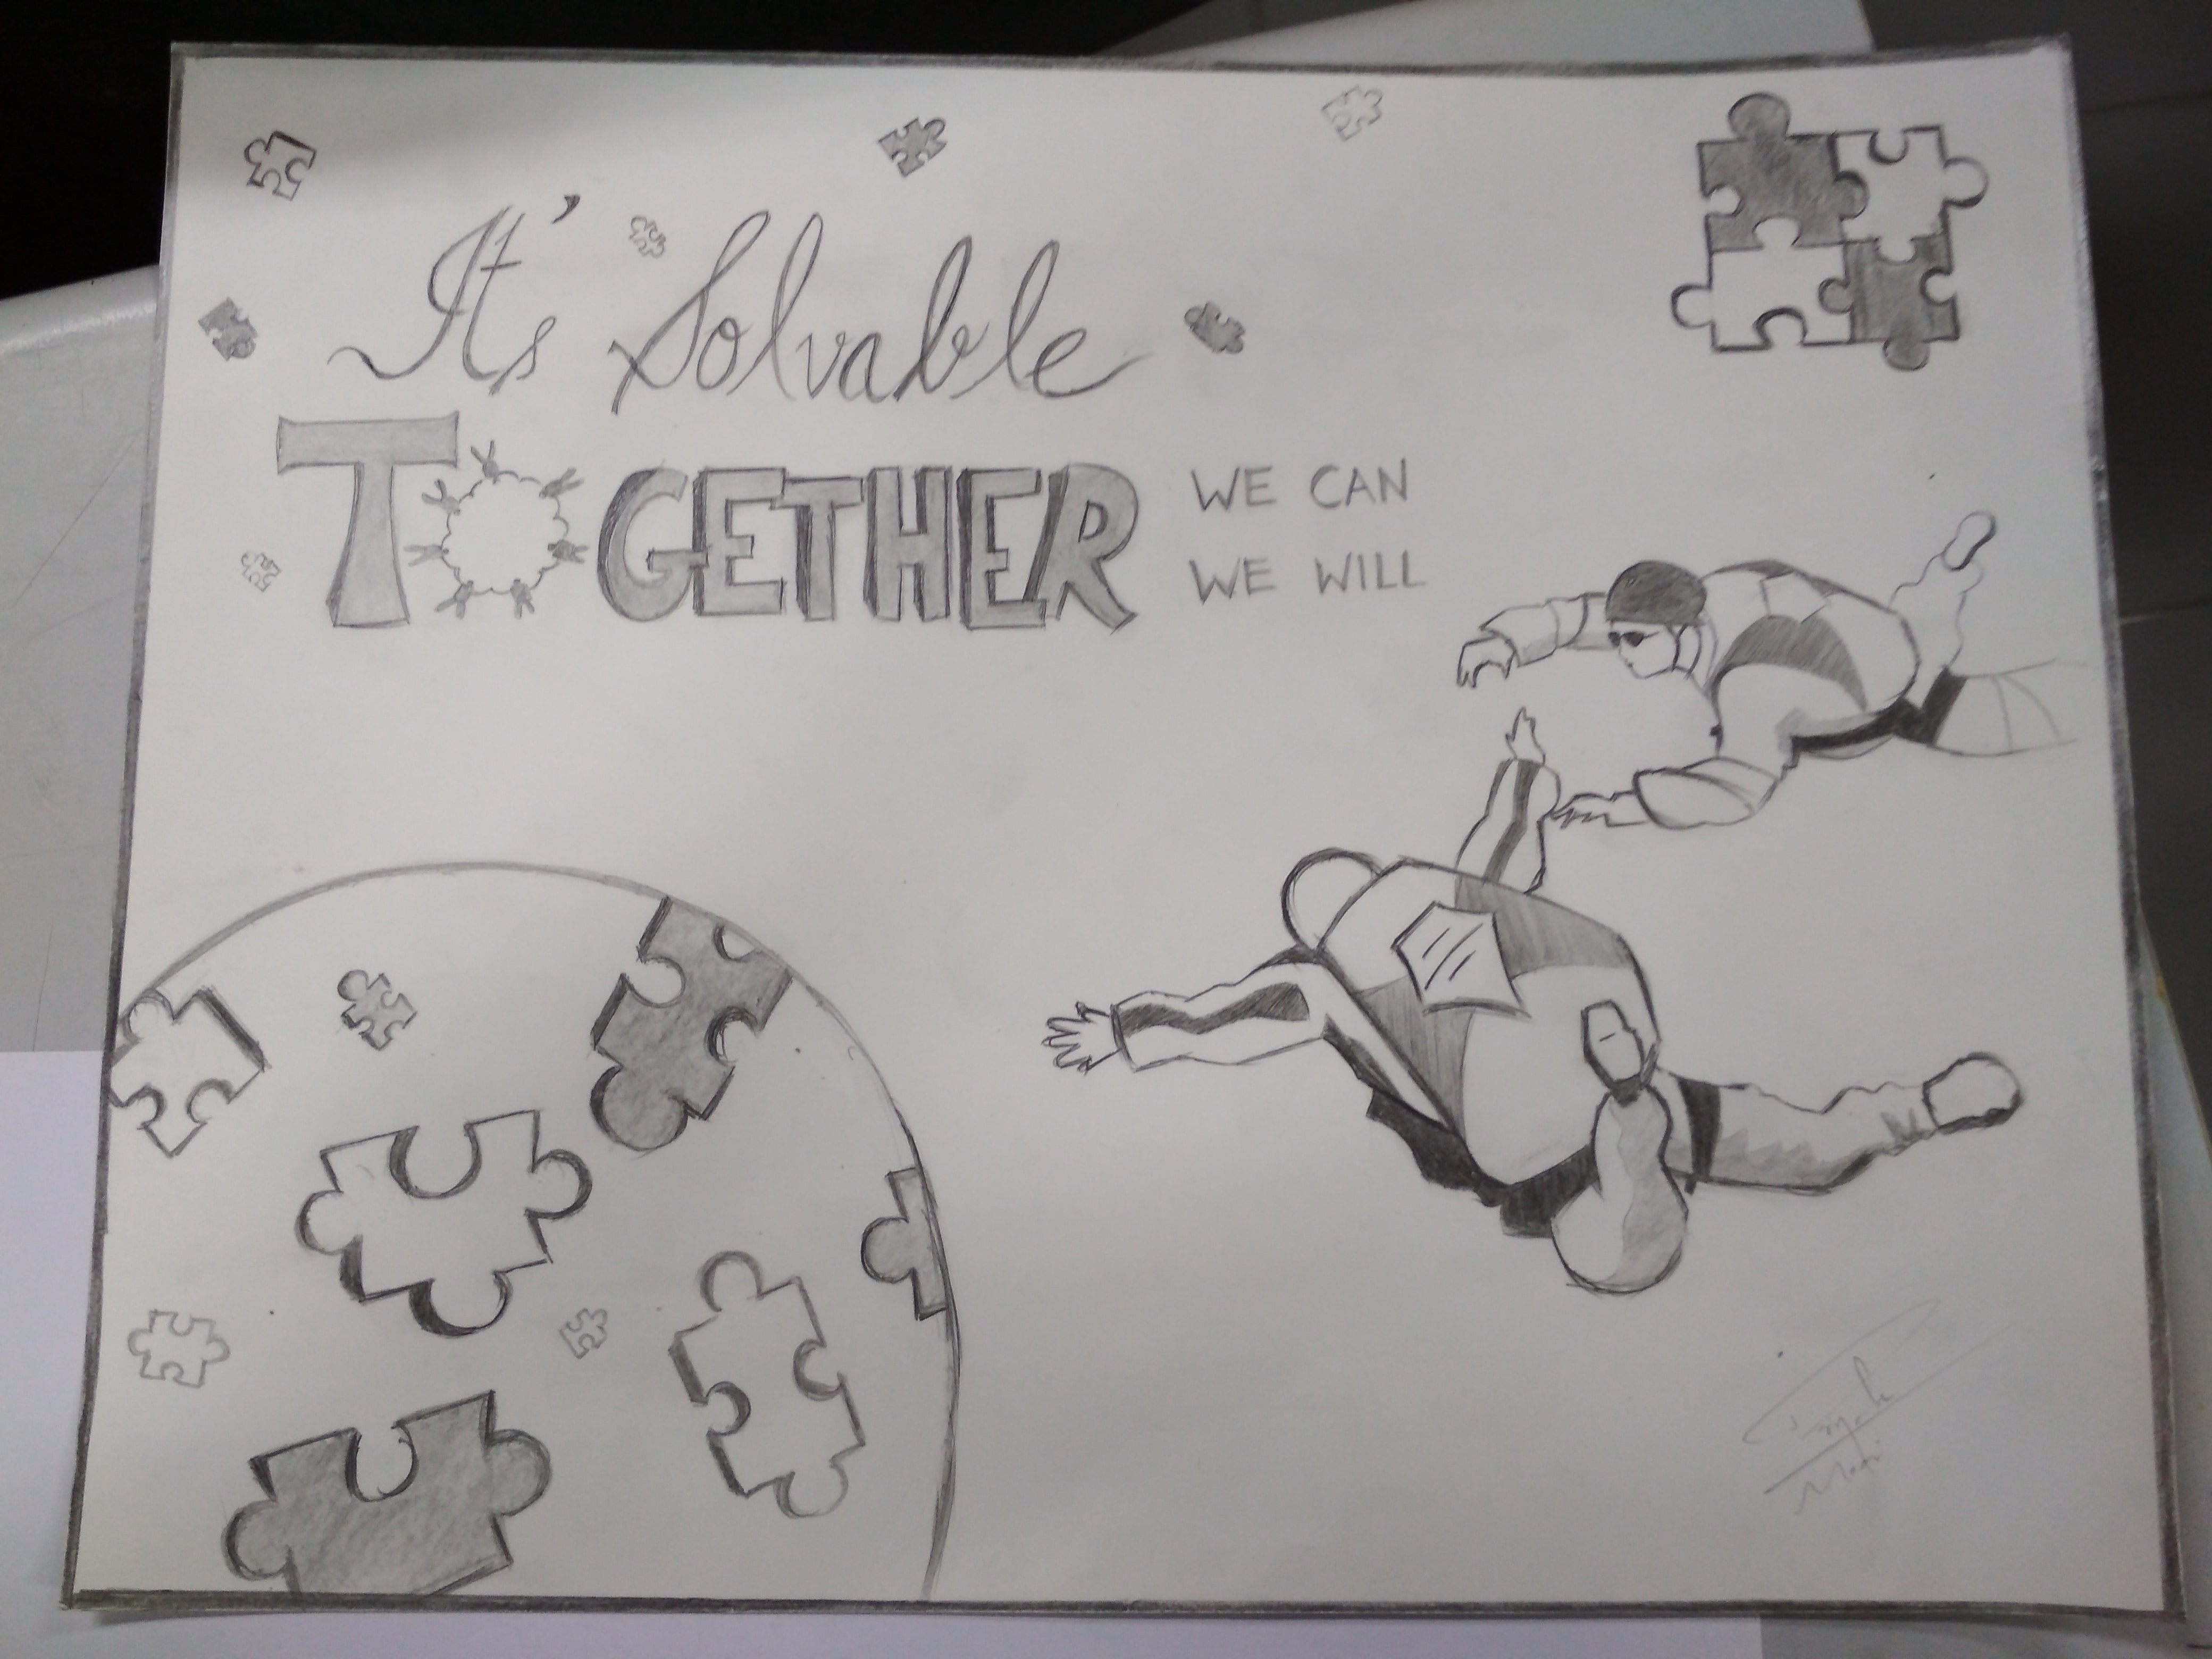 It's Solvable
TOGETHER
WE CAN
WE WILL